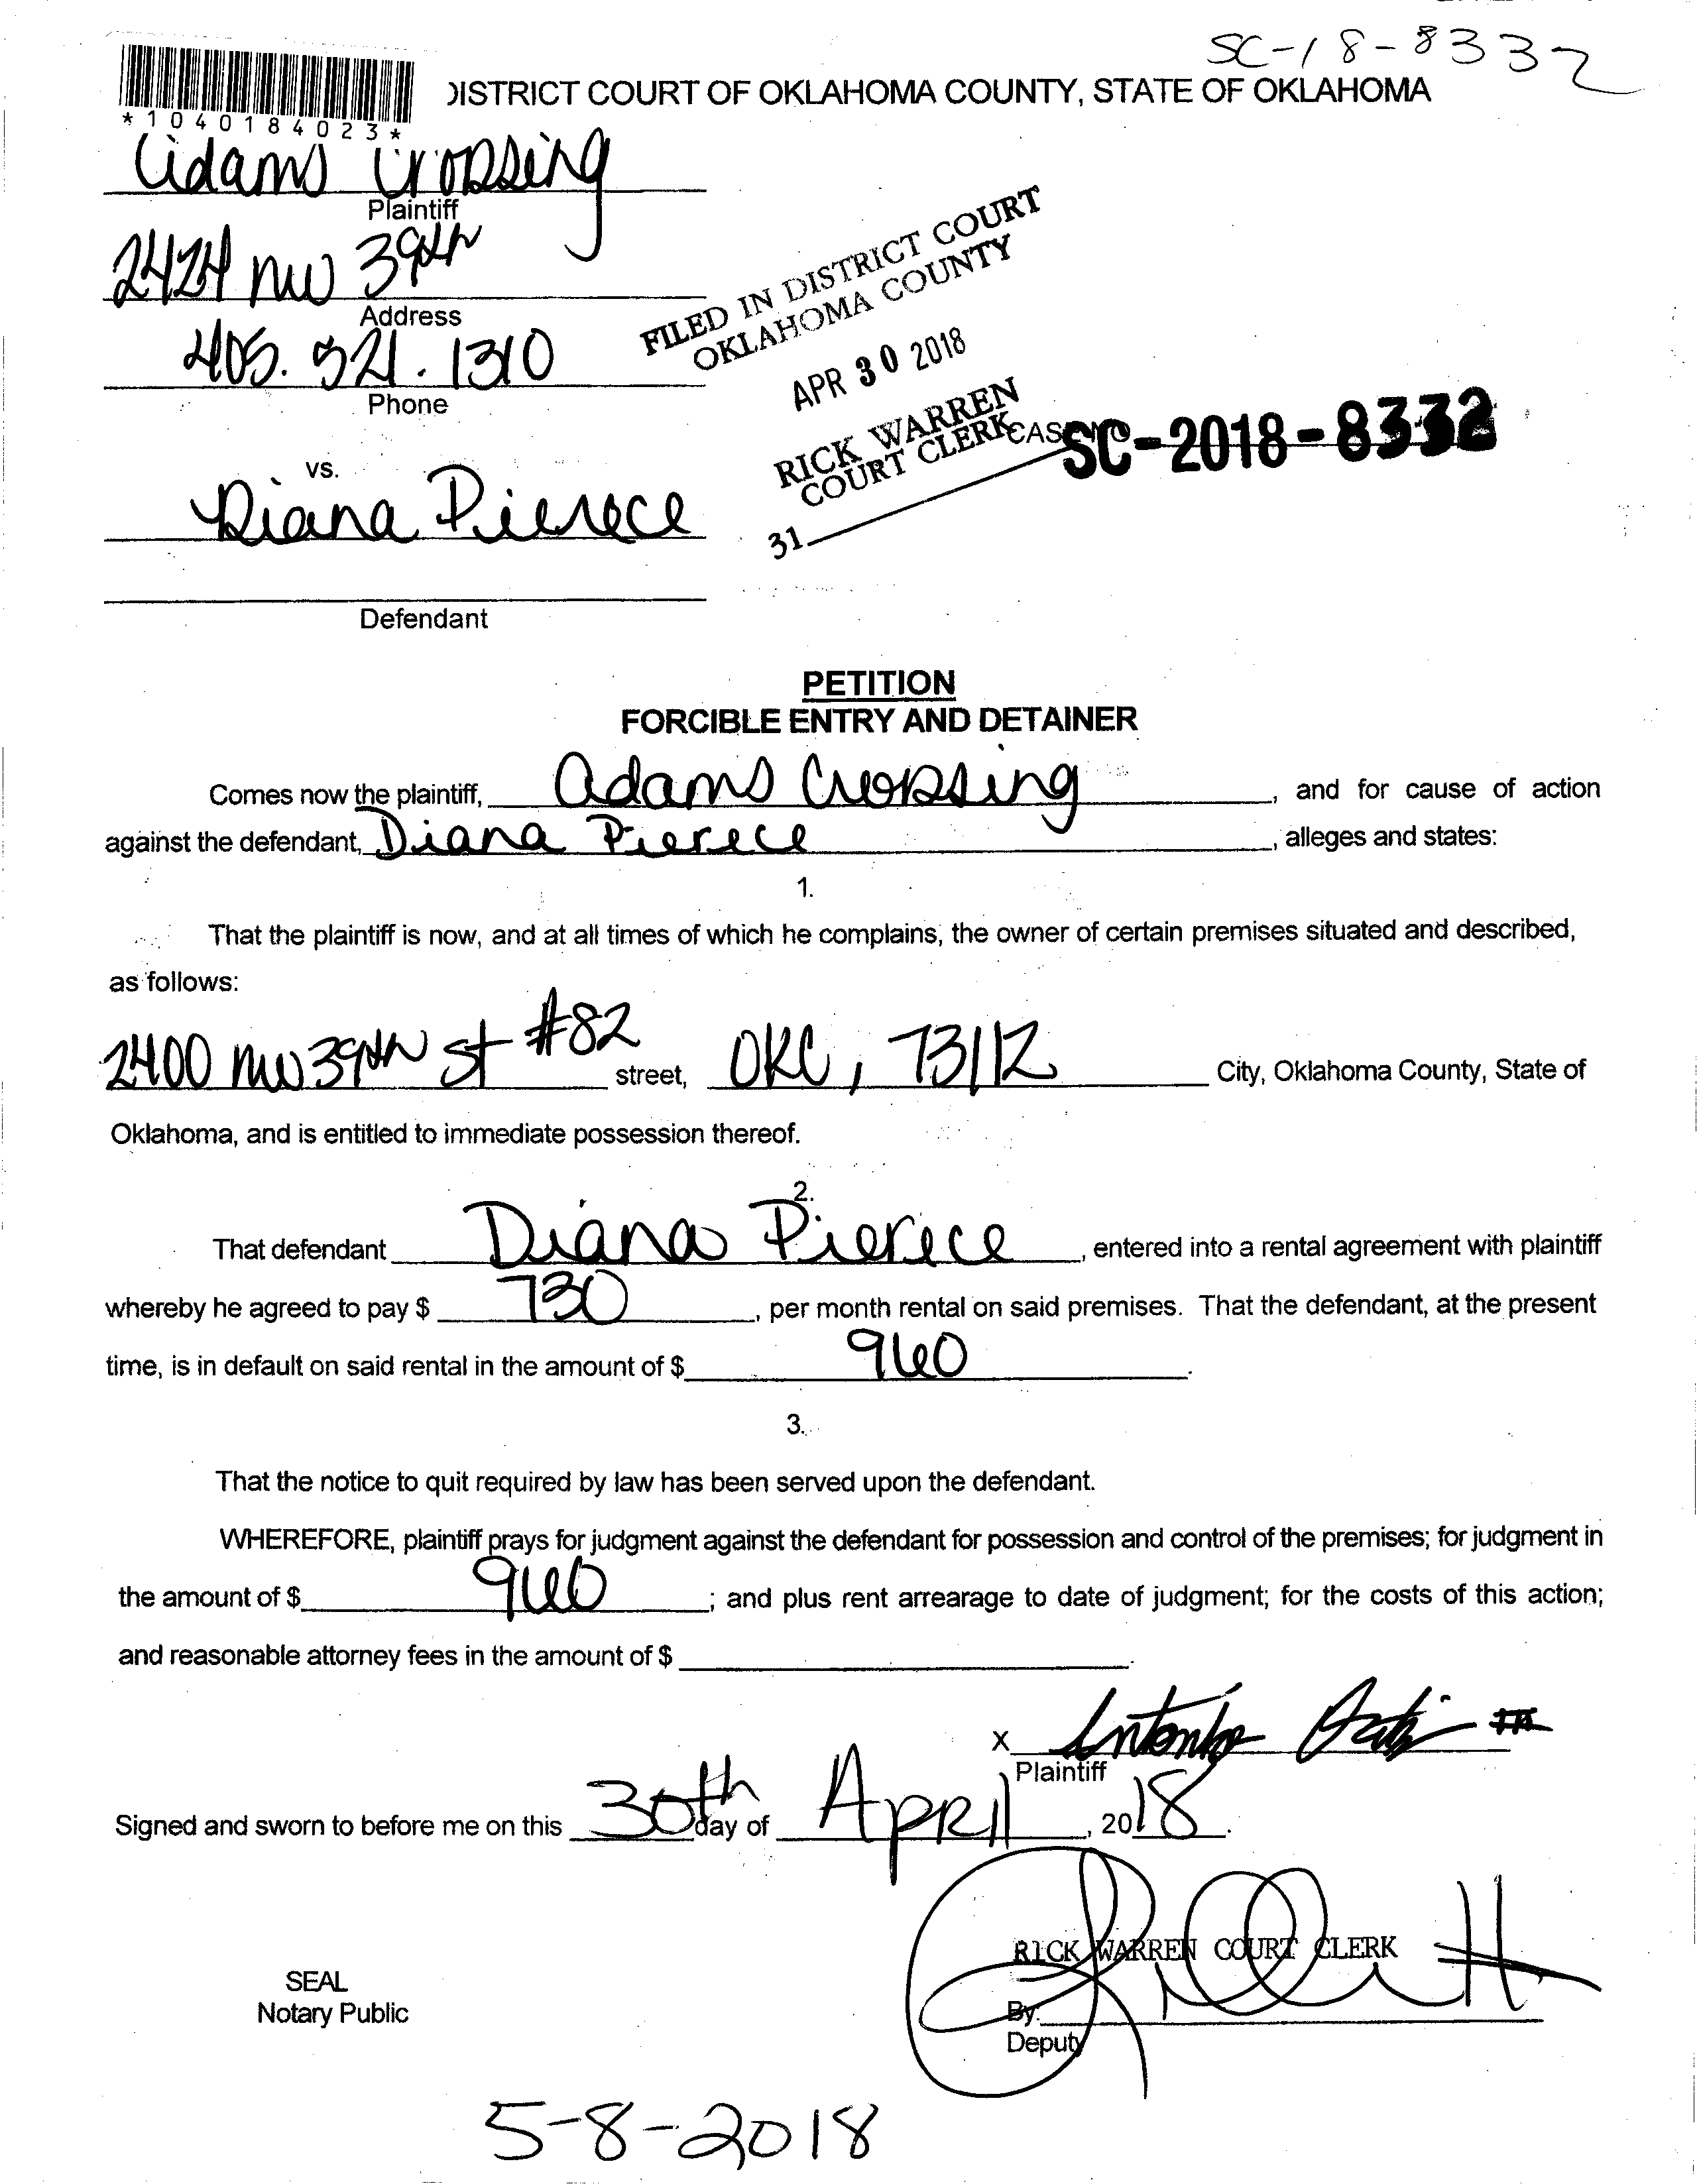 SC-18-8332
DISTRICT COURT OF OKLAHOMA COUNTY, STATE OF OKLAHOMA
*1040184023*
Adams Crossing
Plaintiff
2424 NW 39th
Address
405.521.1310
Phone
FILED IN DISTRICT COURT
OKLAHOMA COUNTY
APR 30 2018
RICK WARREN
COURT CLERK
31
CAS SC-2018-8332
vs.
Diana Pierece
Defendant
PETITION
FORCIBLE ENTRY AND DETAINER
Comes now the plaintiff, Adams Crossing, and for cause of action
against the defendant, Diana Pierece, alleges and states:
1.
That the plaintiff is now, and at all times of which he complains, the owner of certain premises situated and described,
as follows:
2400 NW 39th St #82 street, OKC, 73112 City, Oklahoma County, State of
Oklahoma, and is entitled to immediate possession thereof.
2.
That defendant Diana Pierece, entered into a rental agreement with plaintiff
whereby he agreed to pay $ 730, per month rental on said premises. That the defendant, at the present
time, is in default on said rental in the amount of $ 960.
3.
That the notice to quit required by law has been served upon the defendant.
WHEREFORE, plaintiff prays for judgment against the defendant for possession and control of the premises; for judgment in
the amount of $ 960; and plus rent arrearage to date of judgment; for the costs of this action;
and reasonable attorney fees in the amount of $ .
X
Plaintiff
Signed and sworn to before me on this 30th day of April, 2018.
RICK WARREN COURT CLERK
SEAL
Notary Public
By:
Deputy
5-8-2018